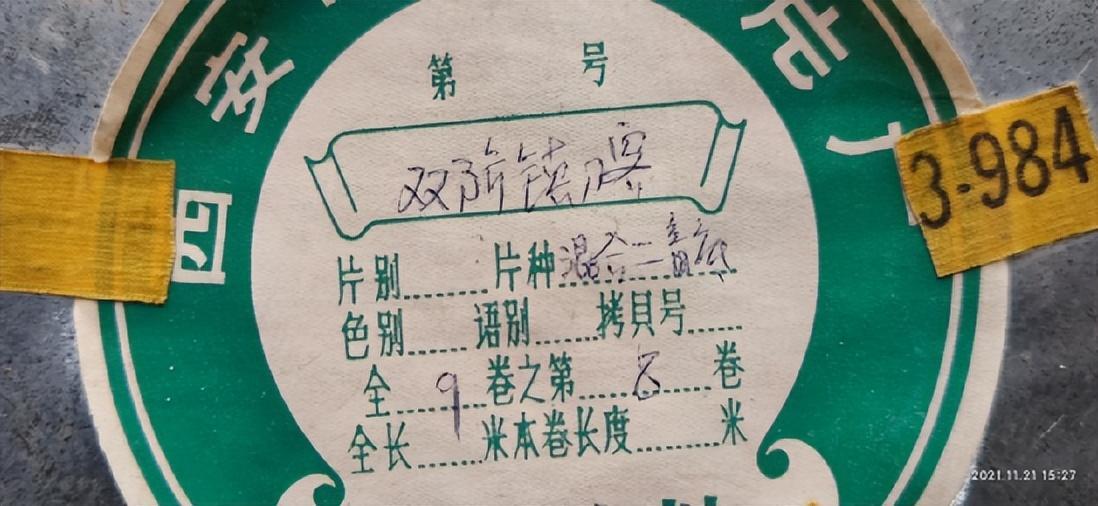 西安
片厂
3-984
第 号
双旗镇刀客
片别......片种混合二音底
色别......语别......拷贝号......
全9卷之第8卷
全长......米本卷长度......米
2021.11.21 15:27